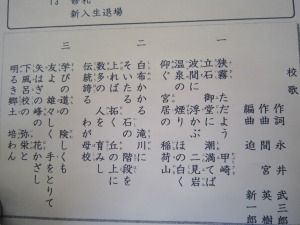 修礼
新入生退場
校歌
作詞 永井武三郎
作曲 間宮英樹
編曲 迫新一郎
一
狭霧ただよう 甲崎
立石 御堂 潮満てば
波間に浮かぶ 二見岩
温泉の煙り ほの白く
仰ぐ宮居の 稲荷山
二
白布かかる 滝川に
そいたる石の 階段を
上れば拓く 丘の上に
人を育みし
伝統誇る わが母校
三
学びの道の 険しくも
友よ雄々しく 手をとりて
矢はぎの峰の 花かざし
下風呂の 弥栄と
明るき郷土 培わん